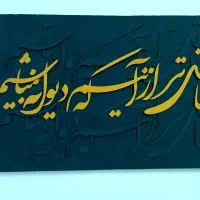 تر از آنیم که دیوانه نباشیم